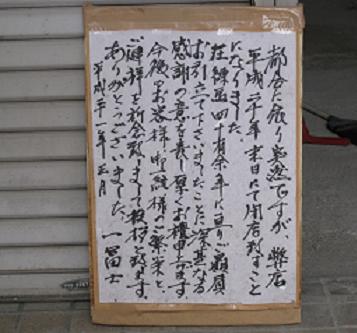 都合に依り突然ですが 弊店
平成二十年 末日にて閉店致すこと
になりました。
荘緑 四十有余年に亘りご贔屓
お引立て下さいましたことに深甚なる
感謝の意を表し厚くお禮申上ます。
今後のお客様御一統様のご繁栄と、
ご健祥を祈念致しまして挨拶と致します。
ありがとうございました。
平成二十一年 正月 一冨士